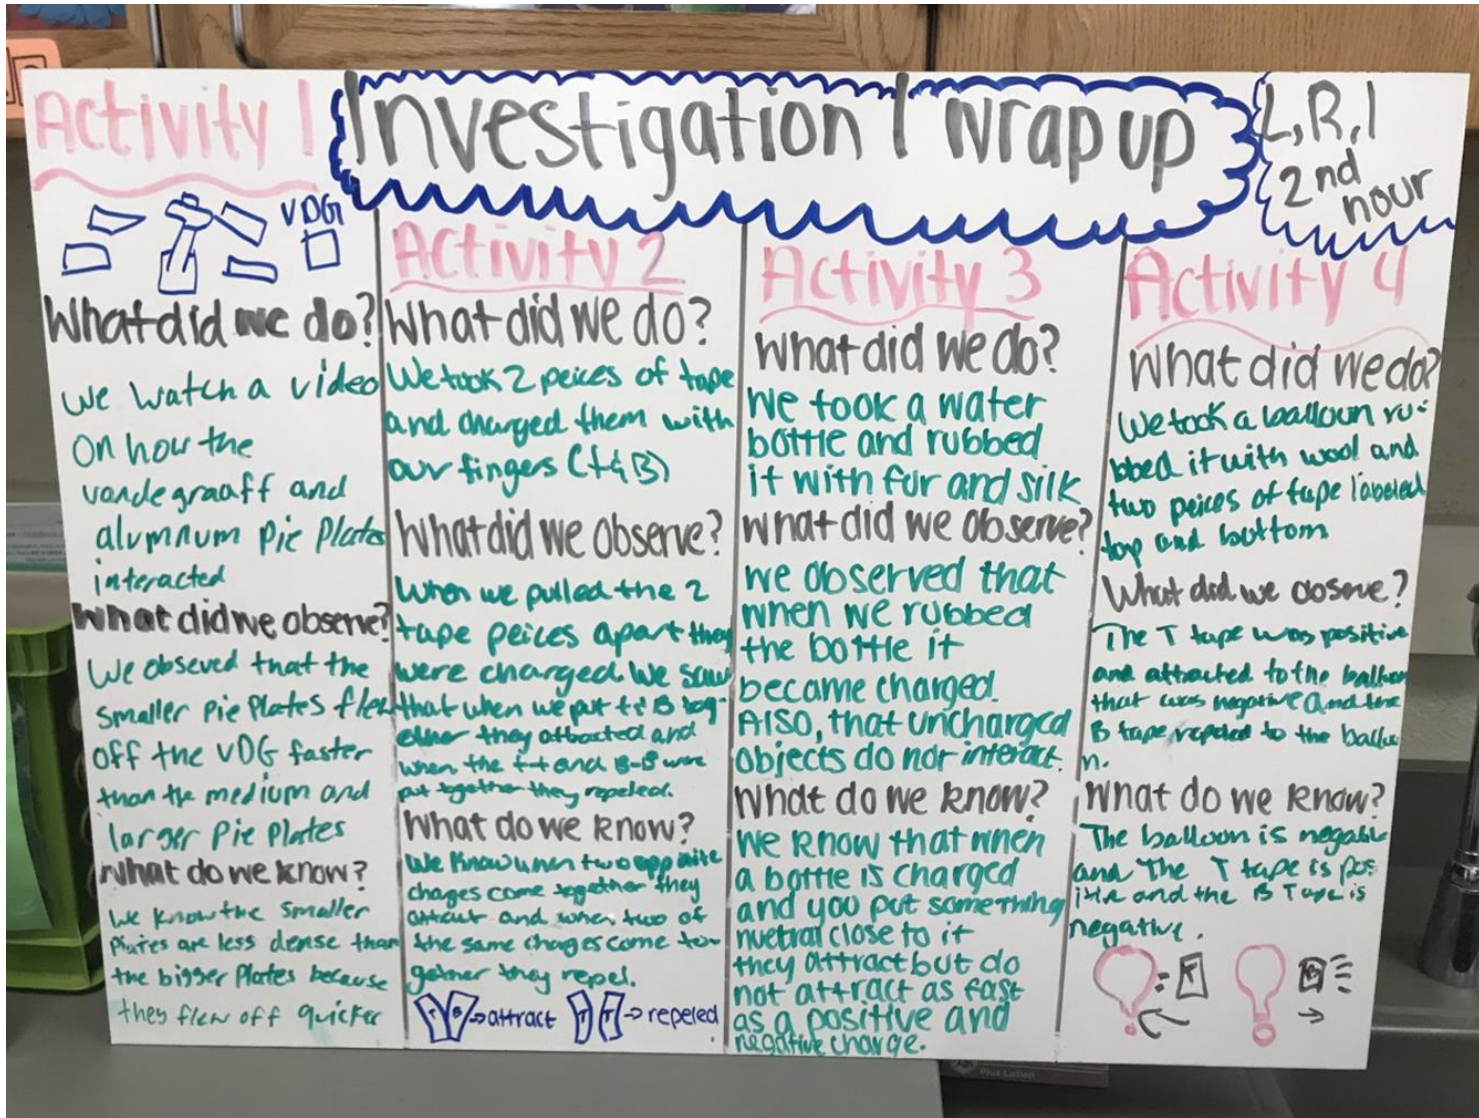 Activity 1
Investigation 1 wrap up
L, R, I
2nd
hour
VDG
What did we do?
We Watch a video
On how the
vandegraaff and
alumnum Pie Plates
interacted
What did we observe?
We obseved that the
smaller Pie Plates flew
off the VDG faster
than the medium and
larger Pie Plates
What do we know?
We know the smaller
Plates are less dense than
the bigger Plates because
they flew off quicker
Activity 2
What did we do?
We took 2 peices of tape
and charged them with
our fingers (t & B)
What did we observe?
When we pulled the 2
tape peices apart they
were charged. We saw
that when we put t & B tog-
ether they attracted and
when the t-t and B-B were
put together they repeled.
What do we know?
We know when two opposite
charges come together they
attract and when two of
the same charges come to-
gether they repel.
T B → attract T T → repeled
Activity 3
What did we do?
We took a water
bottle and rubbed
it with fur and silk
What did we observe?
we observed that
when we rubbed
the bottle it
became charged.
AlSO, that uncharged
objects do not interact.
What do we know?
We know that when
a bottle is charged
and you put something
nuetral close to it
they attract but do
not attract as fast
as a positive and
negative charge.
Activity 4
What did we do?
We took a balloun ru-
bbed it with wool and
two peices of tape labeled
top and bottom
What did we observe?
The T tape was positive
and attracted to the balloon
that was negative and the
B tape repeled to the balloo
n.
What do we know?
The balloon is negative
and The T tape is pos
itive and the B Tape is
negative.
T B
Plus Lotion